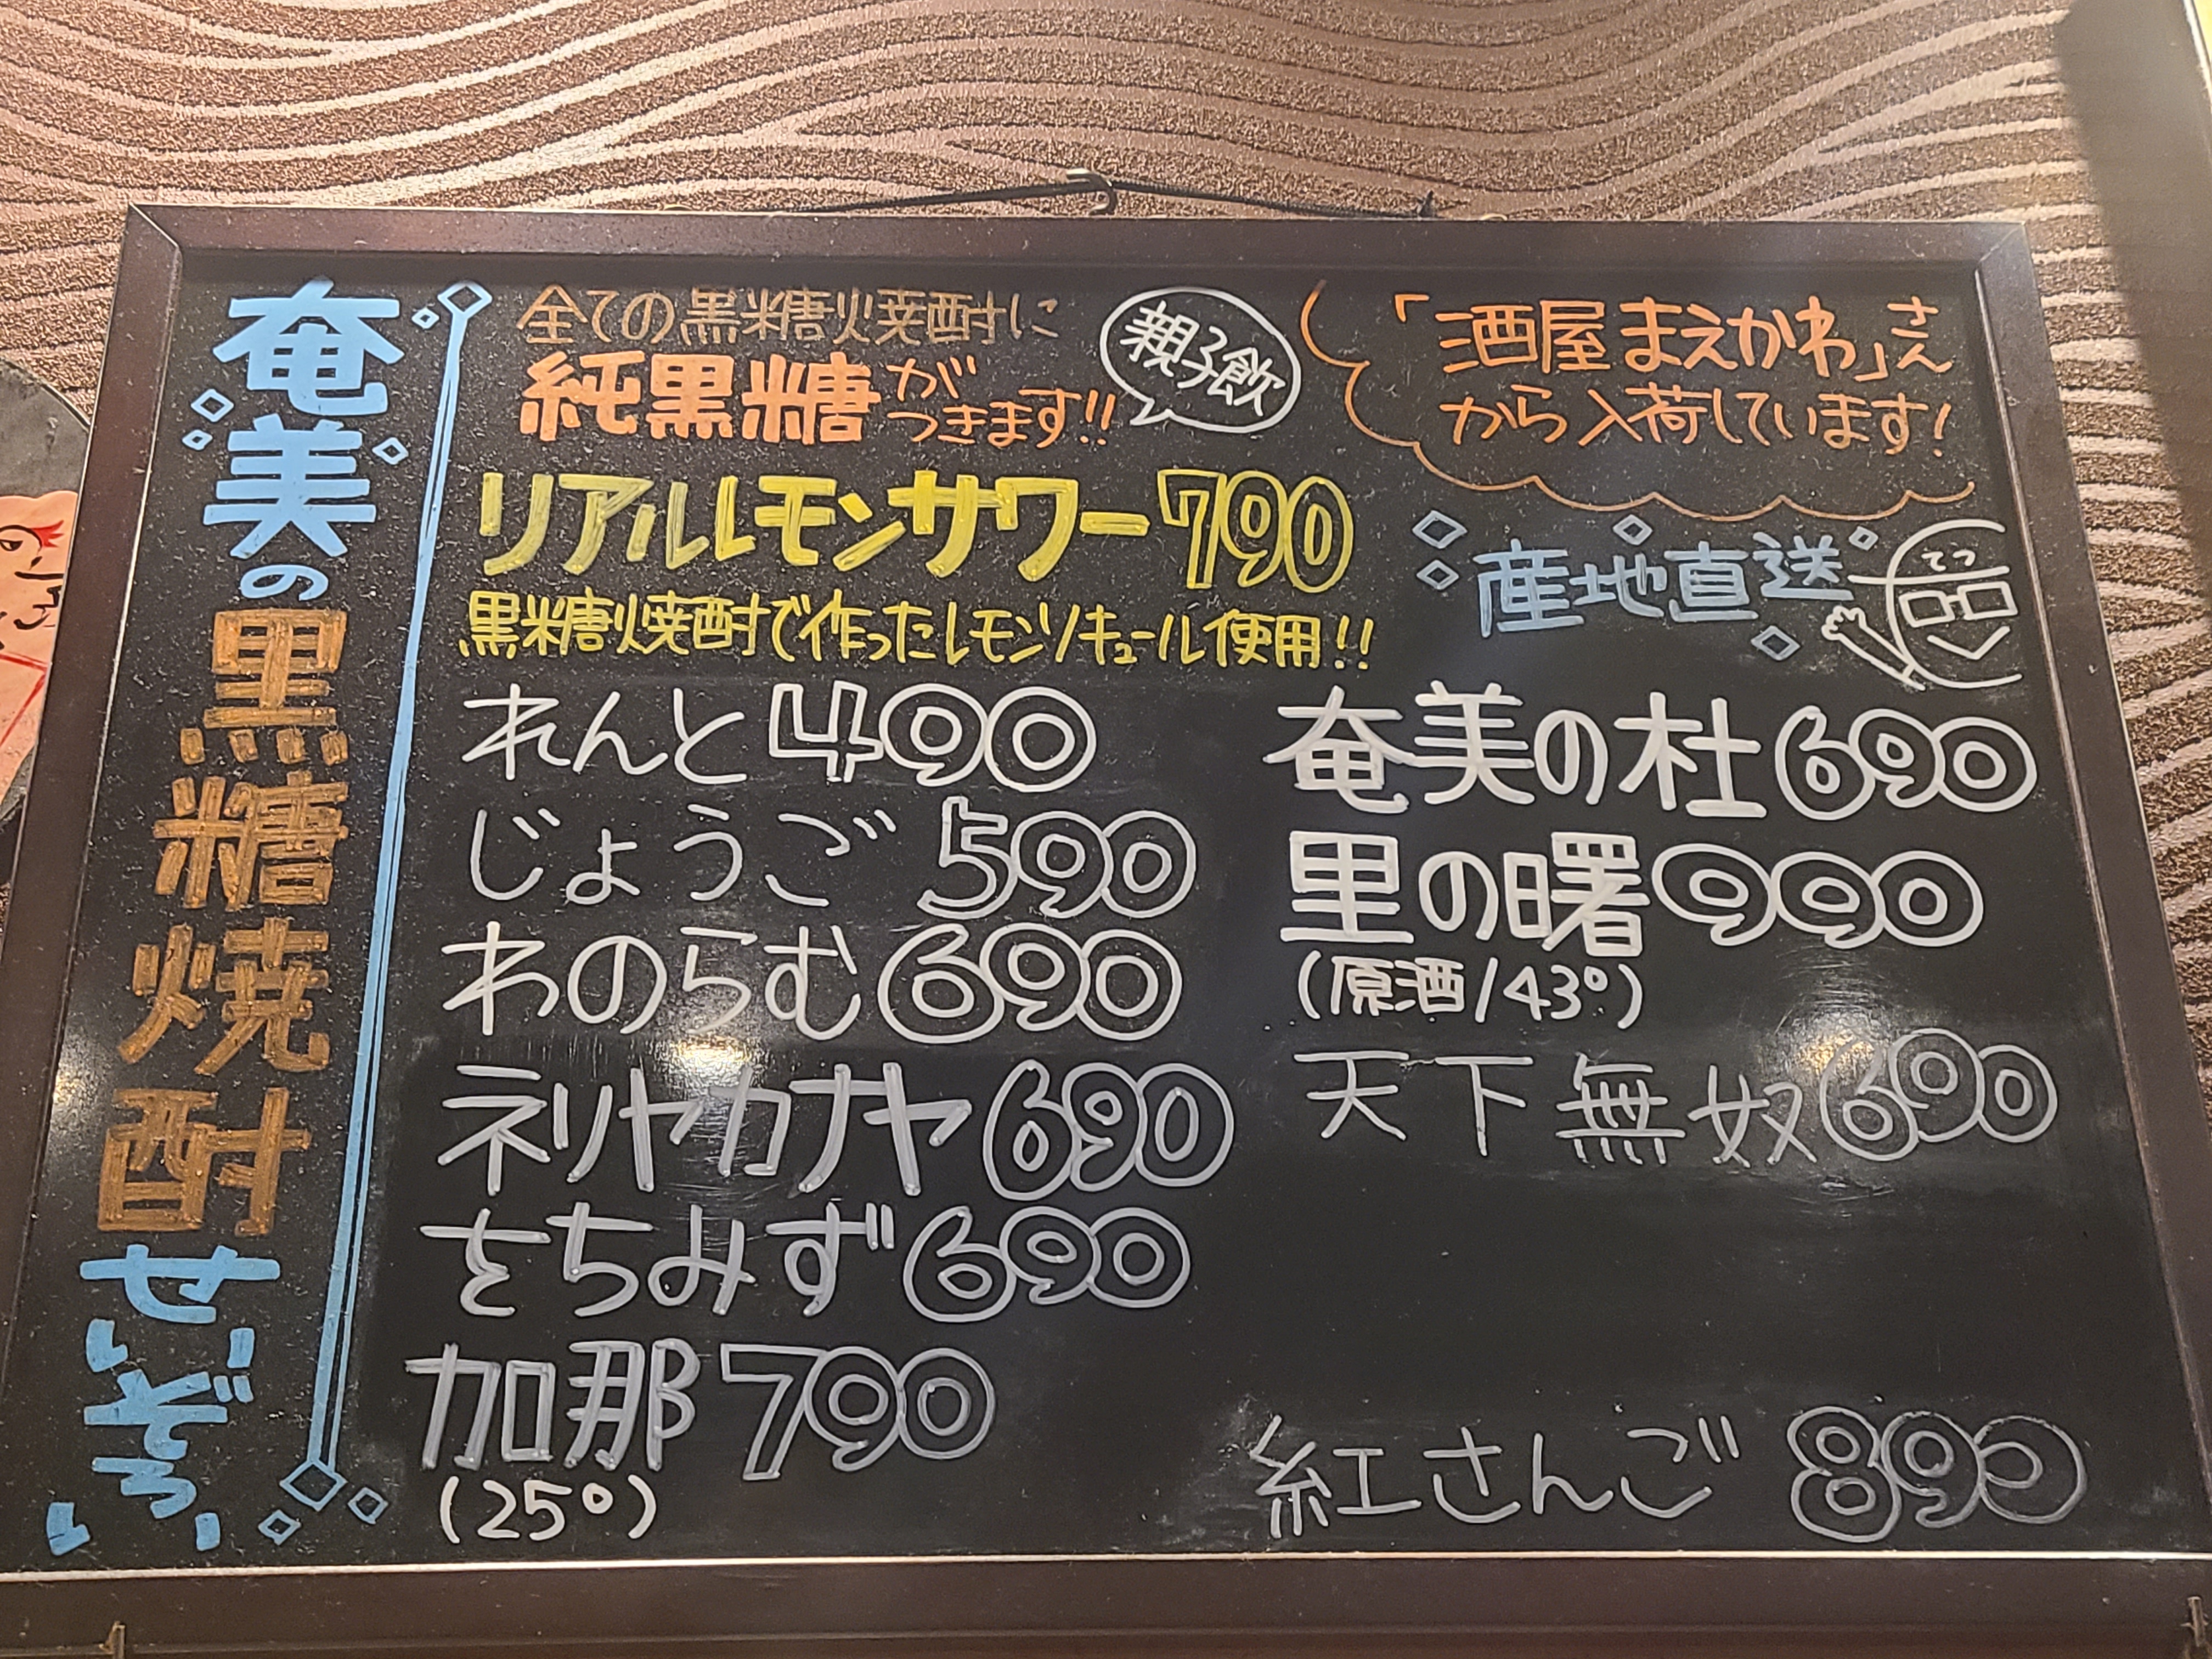 奄美の黒糖焼酎せいぞろい
全ての黒糖焼酎に
純黒糖が
つきます!!
親子飲
「酒屋まえかわ」さん
から入荷しています!
リアルレモンサワー790
黒糖焼酎で作ったレモンリキュール使用!!
産地直送
てつ
れんと490
じょうご590
わのらむ690
ネリヤカナヤ690
をちみず690
加那790
(25°)
奄美の杜690
里の曙990
(原酒/43°)
天下無奴690
紅さんご 890